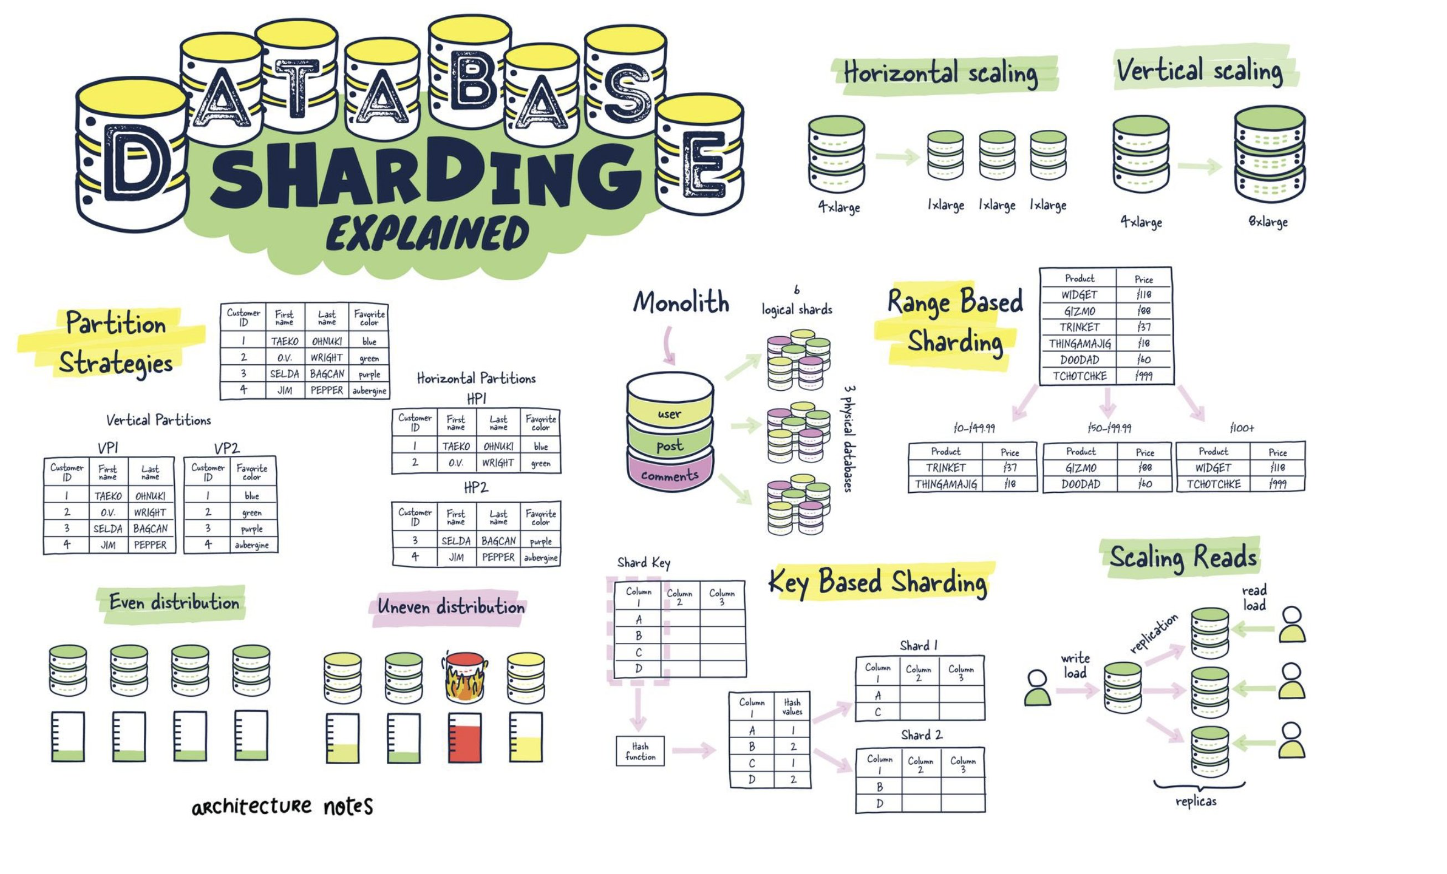 DATABASE
SHARDING
EXPLAINED
Horizontal scaling
4xlarge
1xlarge 1xlarge 1xlarge
Vertical scaling
4xlarge
8xlarge
Partition
Strategies
Customer ID First name Last name Favorite color
1 TAEKO OHNUKI blue
2 O.V. WRIGHT green
3 SELDA BAGCAN purple
4 JIM PEPPER aubergine
Vertical Partitions
VP1
Customer ID First name Last name
1 TAEKO OHNUKI
2 O.V. WRIGHT
3 SELDA BAGCAN
4 JIM PEPPER
VP2
Customer ID Favorite color
1 blue
2 green
3 purple
4 aubergine
Horizontal Partitions
HP1
Customer ID First name Last name Favorite color
1 TAEKO OHNUKI blue
2 O.V. WRIGHT green
HP2
Customer ID First name Last name Favorite color
3 SELDA BAGCAN purple
4 JIM PEPPER aubergine
Monolith
user
post
comments
6
logical shards
3 physical databases
Range Based
Sharding
Product Price
WIDGET $118
GIZMO $88
TRINKET $37
THINGAMAJIG $18
DOODAD $60
TCHOTCHKE $999
$0-$49.99
Product Price
TRINKET $37
THINGAMAJIG $18
$50-$99.99
Product Price
GIZMO $88
DOODAD $60
$100+
Product Price
WIDGET $118
TCHOTCHKE $999
Even distribution
Uneven distribution
Shard Key
Column 1 Column 2 Column 3
A
B
C
D
Key Based Sharding
Hash
function
Column 1 Hash values
A 1
B 2
C 1
D 2
Shard 1
Column 1 Column 2 Column 3
A
C
Shard 2
Column 1 Column 2 Column 3
B
D
Scaling Reads
write
load
replication
read
load
replicas
architecture notes